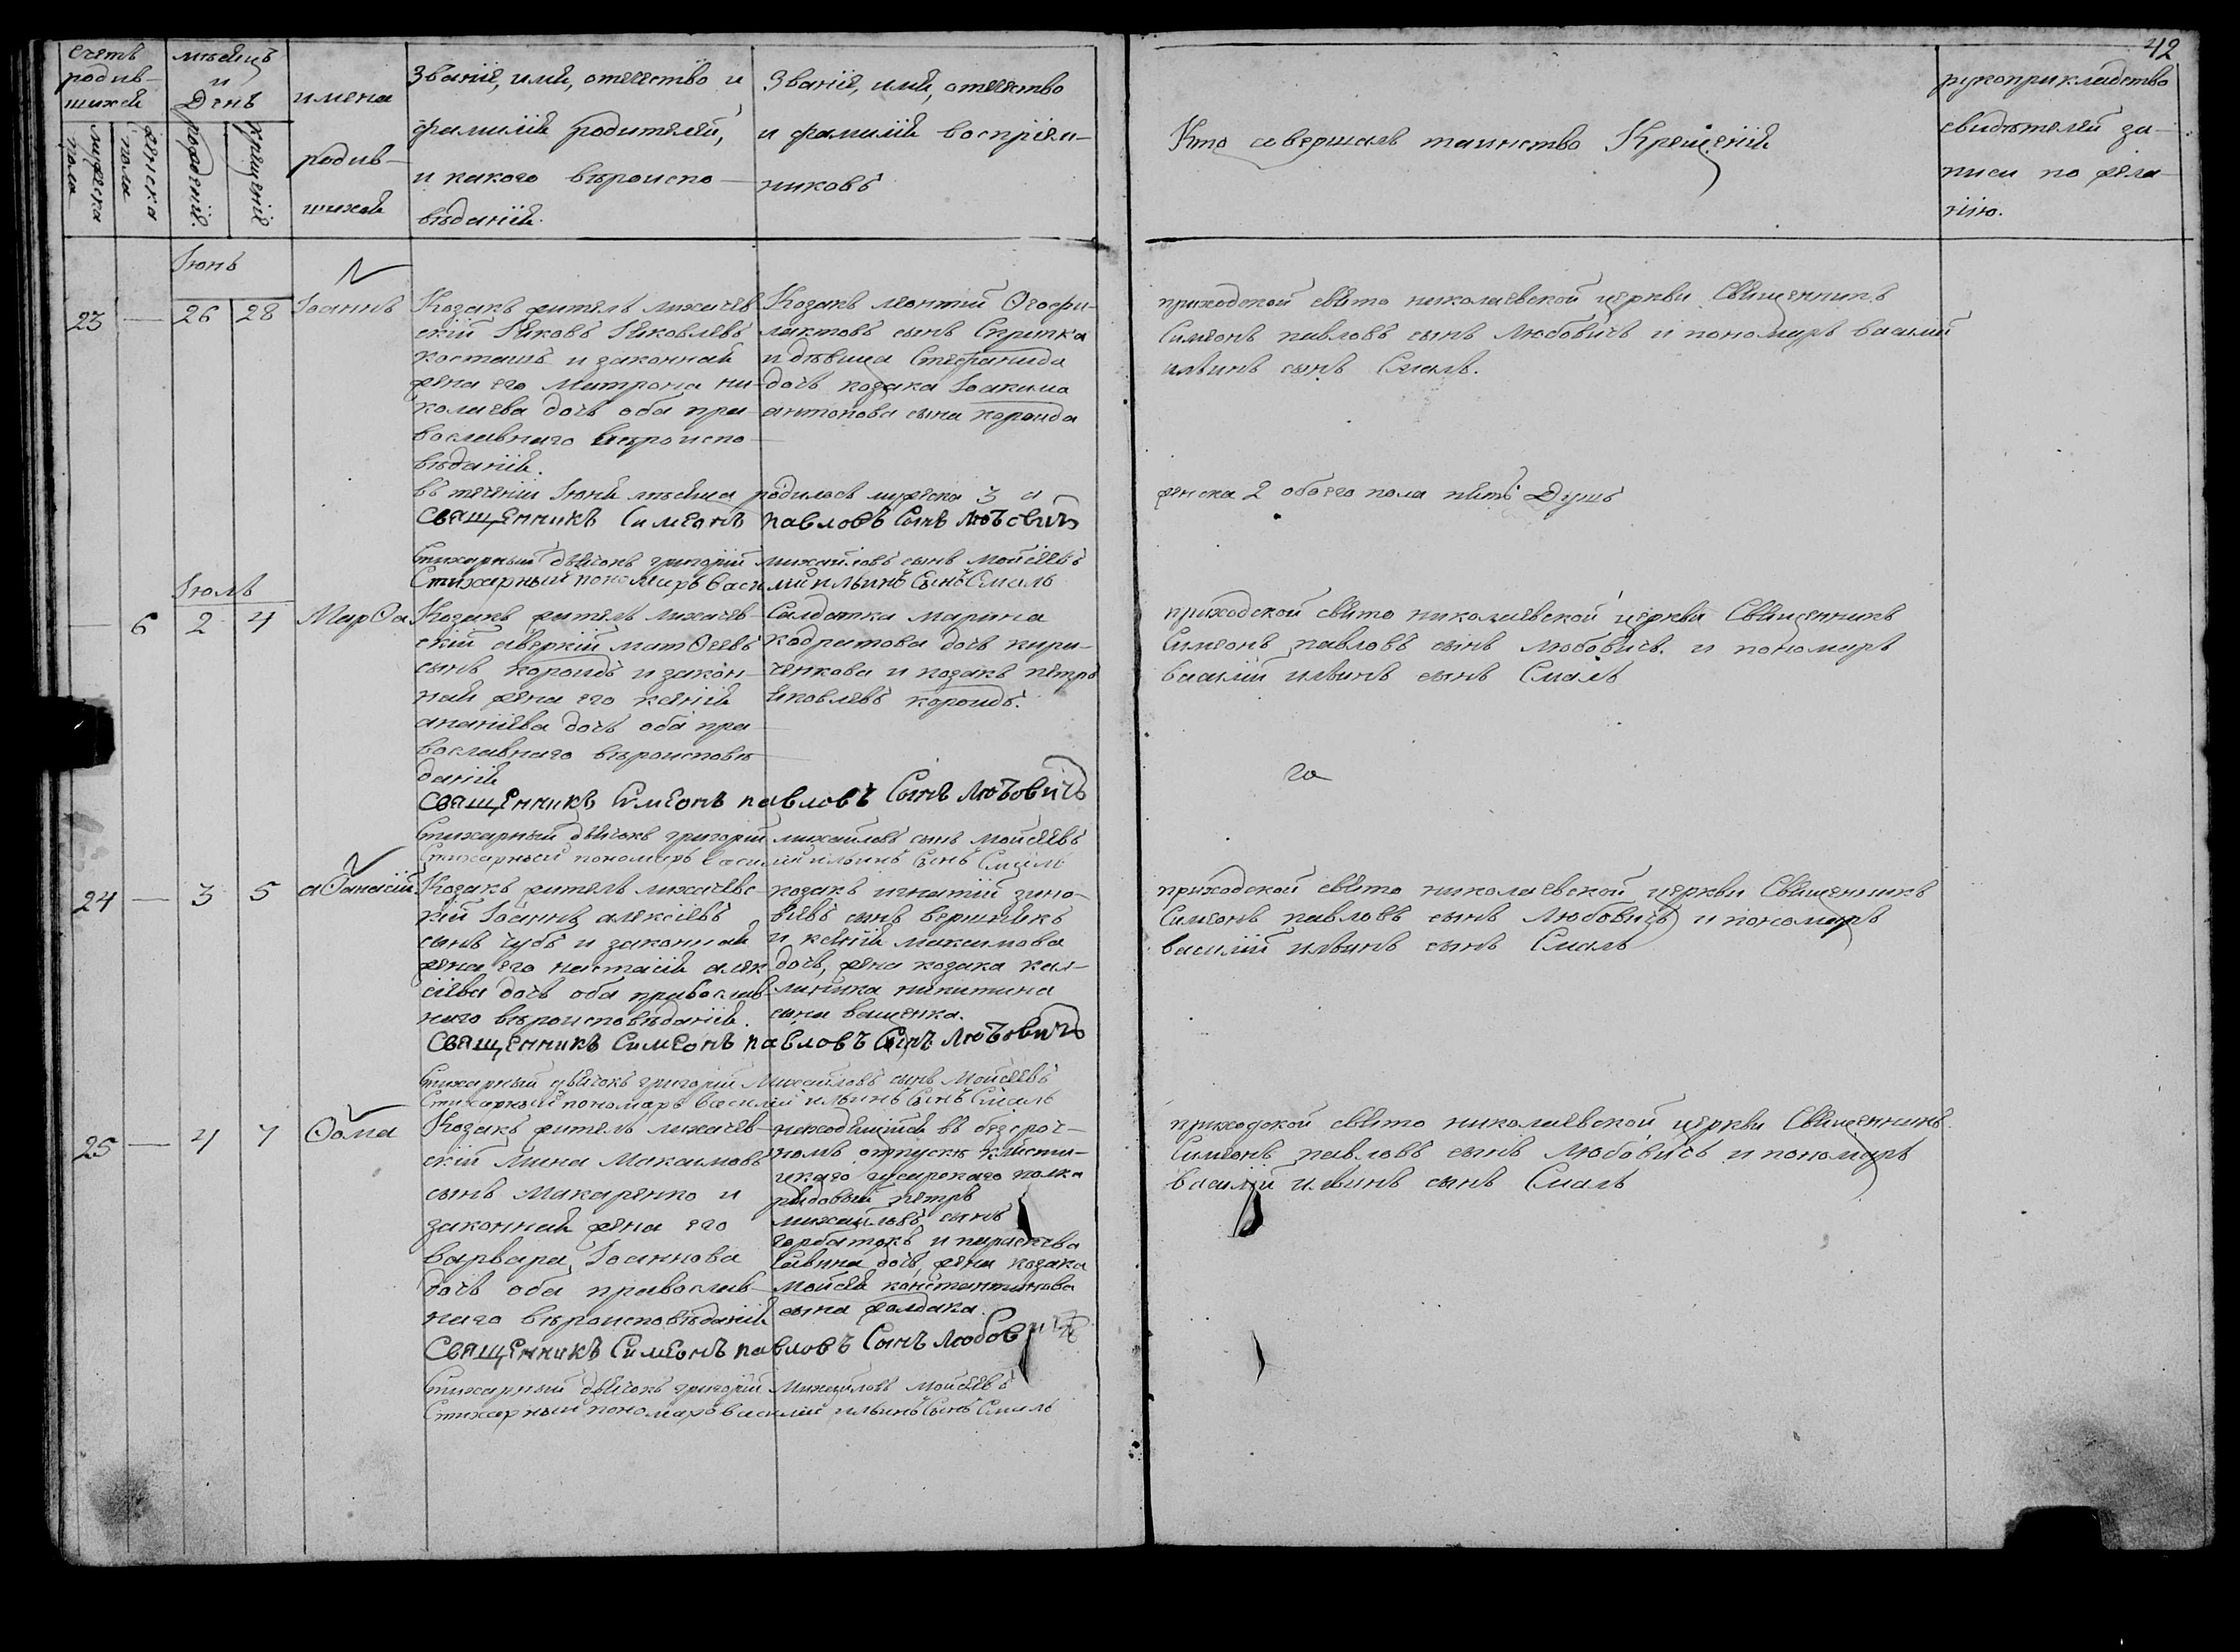 42
счетъ
родив-
шихся
мѣсяцъ
и
День
имена
родив-
шихся
мужеска
пола
женска
пола
рожденія.
крещенія
Званіе, имя, отчество и
фамилія родителей,
и какого вѣроиспо-
вѣданія.
Званіе, имя, отчество
и фамилія воспріем-
никовъ
Кто совершалъ таинство Крещенія
рукоприкладство
свидѣтелей за-
писи по жела-
нію.
Іюнь
23 — 26 28 Іоаннъ
Козакъ житель лихачев
скій Яковъ Яковлевъ
косташъ и законная
жена его Матрона ни-
колаева дочь оба пра-
вославнаго вѣроиспо-
вѣданія.
Козакъ леонтій Ѳеофи-
лактовъ сынъ Скрипка
и дѣвица Стефанида
дочь козака Іоакима
антонова сына короида
приходской свято николаевской церкви Священникъ
Симеонъ павловъ сынъ Любовичъ и пономарь василій
ильинъ сынъ Смаль.
въ теченіи Іюня мѣсяца родилось мужеска 3 а
женска 2 обоего пола пять Душъ
Священникъ Симеонъ павловъ Сынъ Любовичъ
Стихарный дьячокъ григорій михайловъ сынъ мойсеевъ
Стихарный пономарь василій ильинъ Сынъ Смаль
Іюль
— 6 2 4 Марѳа
Козакъ житель лихачев-
скій аверкій матѳеевъ
сынъ короидъ и закон-
ная жена его ксенія
ананіева дочь оба пра
вославнаго вѣроисповѣ
данія
Салдатка марина
кодратова дочь кири-
ченкова и козакъ петръ
яковлевъ короидъ.
приходской свято николаевской церкви Священникъ
Симеонъ павловъ сынъ любовичъ. и пономарь
василій ильинъ сынъ Смаль
Священникъ Симеонъ павловъ Сынъ Любовичъ
Стихарный дьячокъ григорій михайловъ сынъ мойсеевъ
Стихарный пономарь василій ильинъ Сынъ Смаль
24 — 3 5 аѳанасій
Козакъ житель лихачевс-
кій Іоаннъ алексіевъ
сынъ чубъ и законная
жена его настасія алек
сіева дочь оба православ-
наго вѣроисповѣданія.
козакъ игнатій зино-
віевъ сынъ вернижкъ
и ксенія максимова
дочь, жена козака кал-
линика никитина
сына ващенка.
приходской свято николаевской церкви Священникъ
Симеонъ павловъ сынъ Любовичъ и пономарь
василій ильинъ сынъ Смаль
Священникъ Симеонъ павловъ Сынъ Любовичъ
Стихарный дьячокъ григорій Михайловъ сынъ Мойсеевъ
Стихарный пономарь василій ильинъ Сынъ Смаль
25 — 4 7 Ѳома
Козакъ житель лихачев-
скій Мина Максимовъ
сынъ Макаренко и
законная жена его
варвара Іоаннова
дочь оба православ-
наго вѣроисповѣданія
находящійся въ безсроч-
номъ отпуске
гусарскаго полка
рядовый петръ
михайловъ сынъ
горбатокъ и параскева
савина дочь, жена козака
мойсея константинова
сына
приходской свято николаевской церкви Священникъ
Симеонъ павловъ сынъ любовичъ и пономарь
василій ильинъ сынъ Смаль
Священникъ Симеонъ павловъ Сынъ любовичъ
Стихарный дьячокъ григорій Михайловъ мойсеевъ
Стихарный пономарь василій ильинъ Сынъ Смаль